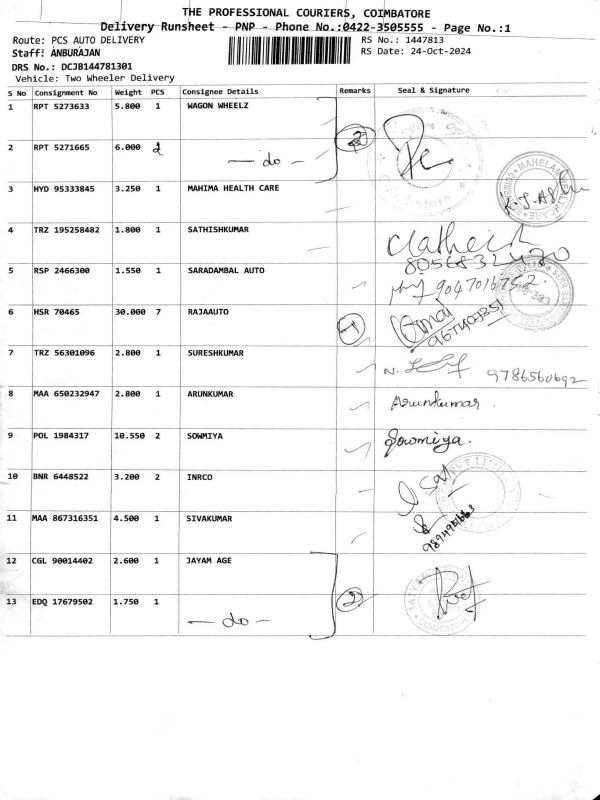 THE PROFESSIONAL COURIERS, COIMBATORE
Delivery Runsheet - PNP - Phone No.:0422-3505555 - Page No.:1
Route: PCS AUTO DELIVERY RS No.: 1447813
Staff: ANBURAJAN RS Date: 24-Oct-2024
DRS No.: DCJB144781301
Vehicle: Two Wheeler Delivery
S No Consignment No Weight PCS Consignee Details Remarks Seal & Signature
1 RPT 5273633 5.800 1 WAGON WHEELZ
2 RPT 5271665 6.000 — do —
3 HYD 95333845 3.250 1 MAHIMA HEALTH CARE
4 TRZ 195258482 1.800 1 SATHISHKUMAR
8056832420
5 RSP 2466300 1.550 1 SARADAMBAL AUTO 9047016752
6 HSR 70465 30.000 7 RAJAAUTO
7 TRZ 56301096 2.800 1 SURESHKUMAR 9786560692
8 MAA 650232947 2.800 1 ARUNKUMAR Arunkumar.
9 POL 1984317 10.550 2 SOWMIYA Sowmiya.
10 BNR 6448522 3.200 2 INRCO
11 MAA 867316351 4.500 1 SIVAKUMAR
12 CGL 90014402 2.600 1 JAYAM AGE
13 EDQ 17679502 1.750 1 — do — 2